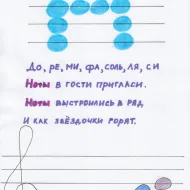 До, ре, ми, фа, соль, ля, си
Ноты в гости пригласи.
Ноты выстроились в ряд
И как звёздочки горят.